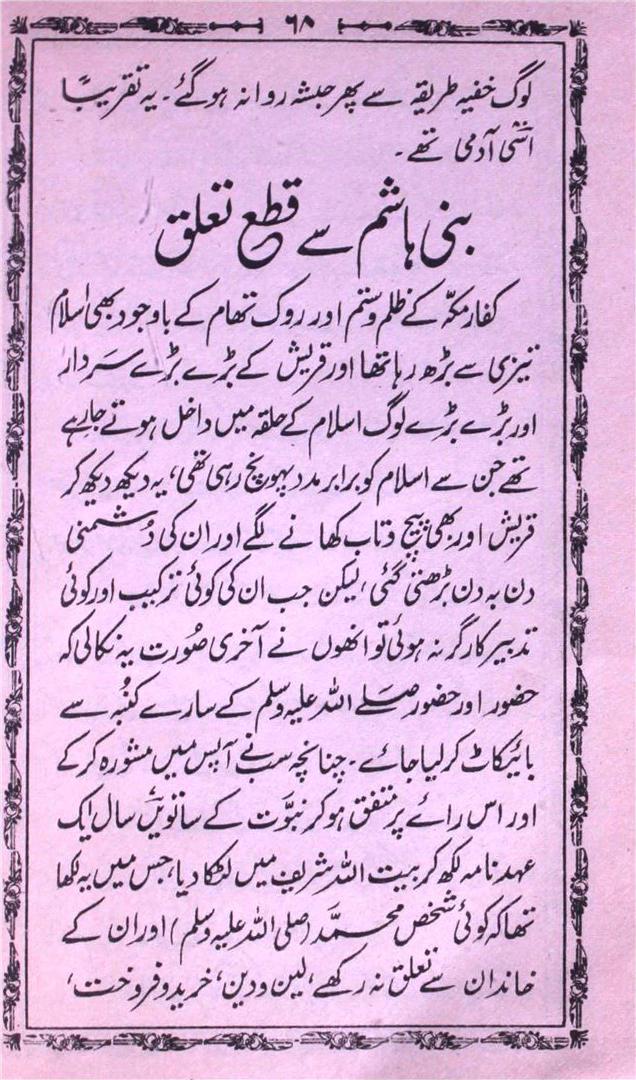 ۶۸
لوگ خفیہ طریقہ سے پھر حبشہ روانہ ہوگئے۔ یہ تقریبًا
اسّی آدمی تھے۔
بنی ہاشم سے قطع تعلق
کفار مکہّ کے ظلم و ستم اور روک تھام کے باوجود بھی اسلام
تیزی سے بڑھ رہا تھا اور قریش کے بڑے بڑے سَردار
اور بڑے بڑے لوگ اسلام کے حلقہ میں داخل ہوتے جارہے
تھے جن سے اسلام کو برابر مدد پہونچ رہی تھی، یہ دیکھ دیکھ کر
قریش اور بھی پیچ و تاب کھانے لگے اور ان کی دُشمنی
دن بہ دن بڑھتی گئی، لیکن جب ان کی کوئی ترکیب اور کوئی
تدبیر کارگر نہ ہوئی تو انھوں نے آخری صُورت یہ نکالی کہ
حضور اور حضور صلے اللہ علیہ وسلم کے سارے کنُبہ سے
بائیکاٹ کرلیا جائے۔ چنانچہ سب نے آپس میں مشورہ کرکے
اور اس رائے پر متفق ہوکر نبوّت کے ساتویں سال ایک
عہد نامہ لکھ کر بیت اللہ شریف میں لٹکا دیا، جس میں یہ لکھا
تھا کہ کوئی شخص محمّد (صلی اللہ علیہ وسلم) اور ان کے
خاندان سے تعلق نہ رکھے، لین و دین، خرید و فروخت،